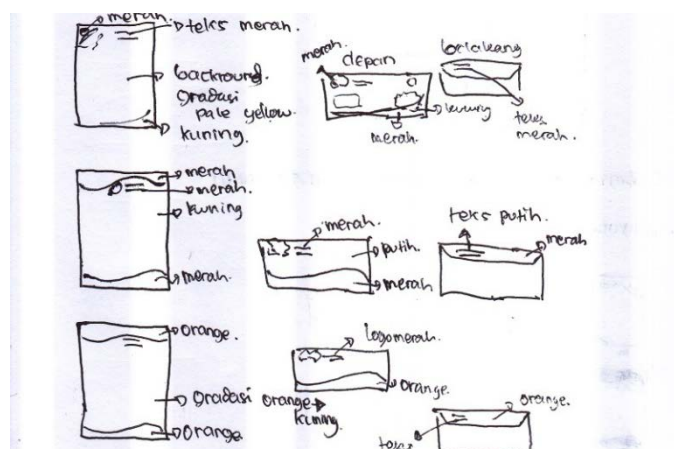 merah.
teks merah.
backround.
gradasi
pale yellow.
kuning.
merah.
depan
kuning
merah.
belakang
teks
merah.
merah
merah.
kuning
merah.
merah.
putih
merah
teks putih.
merah
orange.
gradasi orange
kuning.
orange
logo merah.
orange.
orange.
teks